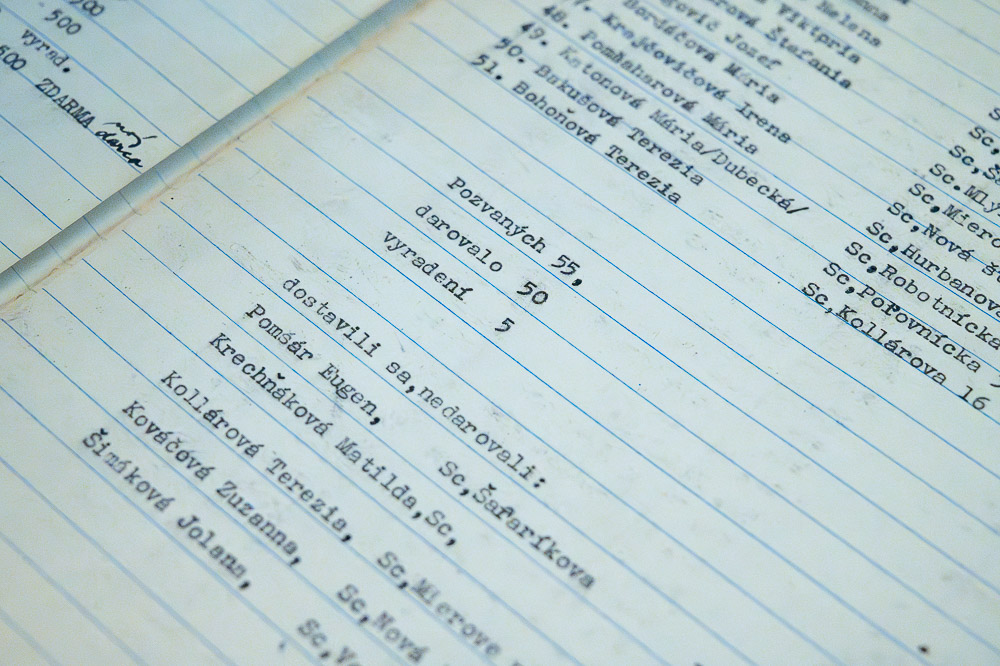 500
vyrad.
500 ZDARMA
darca
Helena
Viktória
Štefánia
Jozef
Bordáčová Mária
Krajčovičová Irena
48. Pomšaharová Mária
49. Katonová Mária/Dubecká/
50. Bukušová Terezia
51. Bohoňová Terezia
Sc,
Sc,
Sc,Nová
Sc,Hurbanova
Sc,Robotnícka
Sc,Poľovnícka
Sc,Kollárova 16
Pozvaných 55,
darovalo 50
vyradení 5
dostavili sa,nedarovali:
Pomšár Eugen, Sc,Šafaríkova
Krechňáková Matilda,Sc,
Kollárová Terezia, Sc,Mierove
Kováčóvá Zuzanna, Sc,Nová
Šimáková Jolana, Sc,